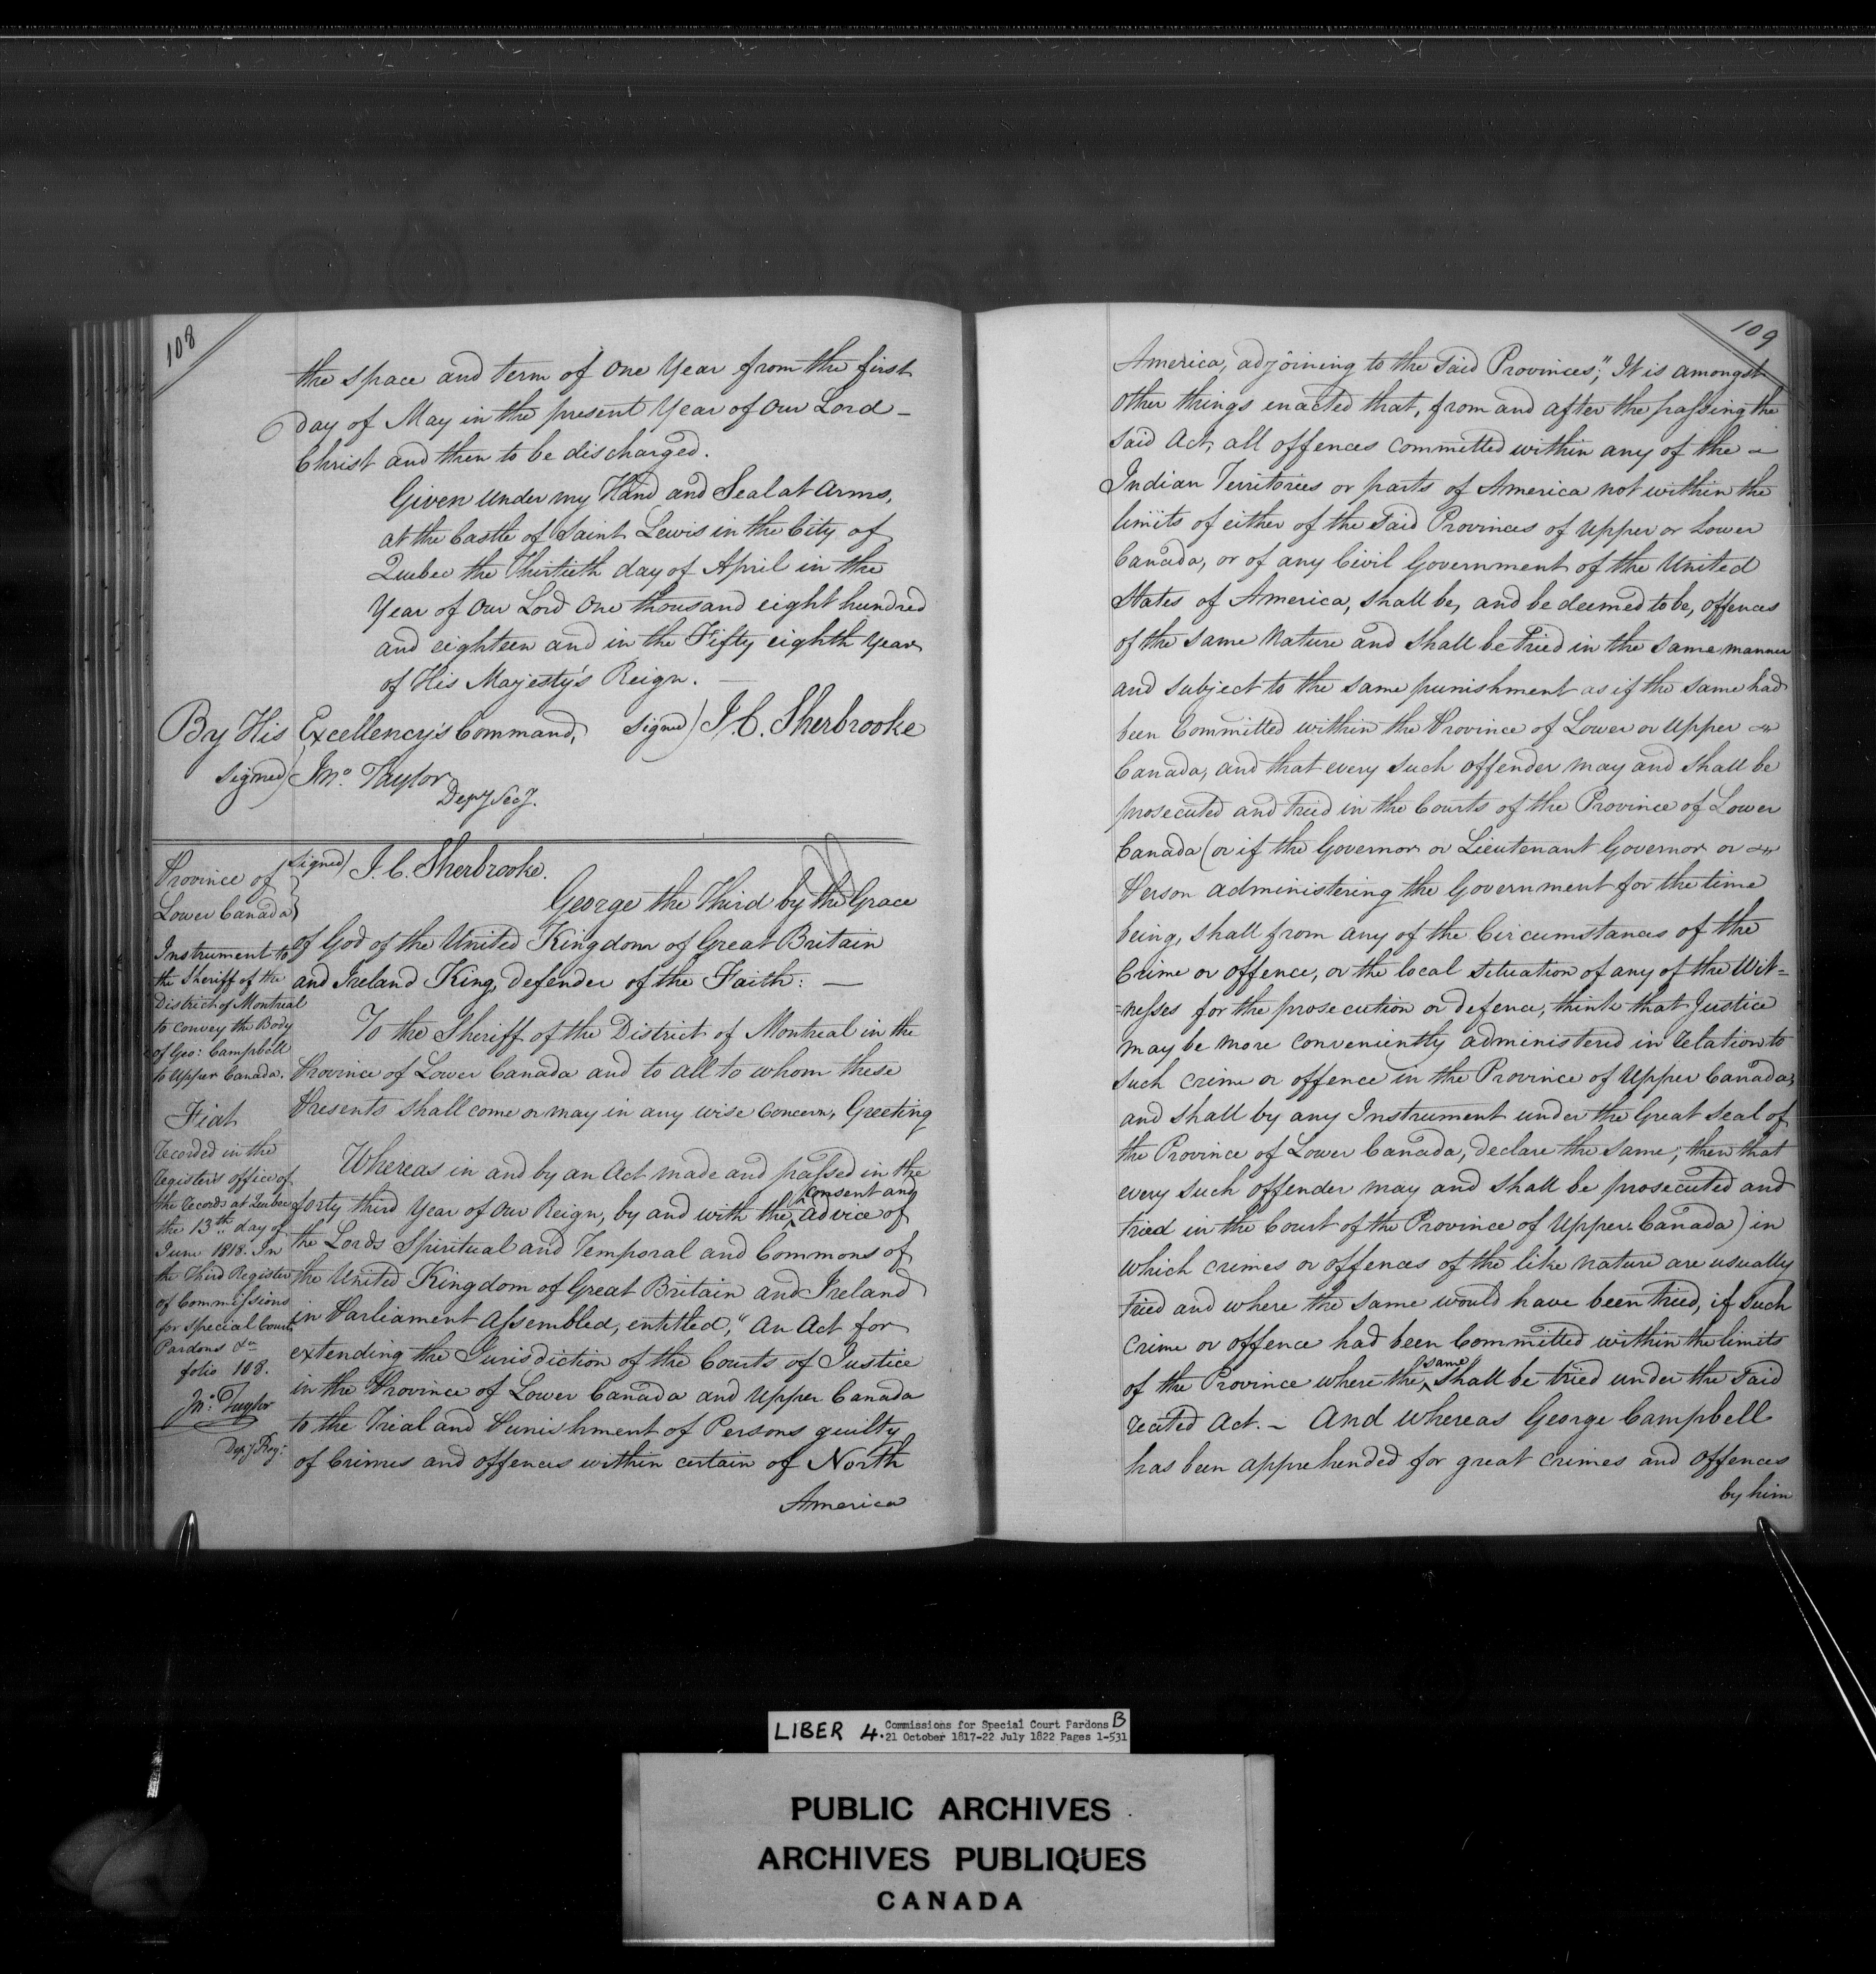 108
the space and term of One Year from the first
day of May in the present Year of Our Lord -
Christ and then to be discharged.
Given under my Hand and Seal at Arms,
at the Castle of Saint Lewis in the City of
Quebec the Thirtieth day of April in the
Year of Our Lord One thousand eight hundred
and eighteen and in the Fifty eighth Year
of His Majesty's Reign. —
By His Excellency's Command, signed) J. C. Sherbrooke
signed) Jno. Taylor
Depy Secy.
Province of
Lower Canada
Instrument to
the Sheriff of the
District of Montreal
to convey the Body
of Geo: Campbell
to Upper Canada.
Fiat
Recorded in the
Registers office of
the Records at Quebec
the 13th day of
June 1818. In
the Third Register
of Commissions
for special Courts
Pardons &c
folio 108.
Jno: Taylor
Depy Reg:
signed) J. C. Sherbrooke.
George the Third by the Grace
of God of the United Kingdom of Great Britain
and Ireland King, defender of the Faith: —
To the Sheriff of the District of Montreal in the
Province of Lower Canada and to all to whom these
Presents shall come or may in any wise Concern, Greeting
Whereas in and by an Act made and passed in the
forty third Year of Our Reign, by and with the consent and advice of
the Lords Spiritual and Temporal and Commons of
the United Kingdom of Great Britain and Ireland
in Parliament Assembled, entitled, "An Act for
extending the Jurisdiction of the Courts of Justice
in the Province of Lower Canada and Upper Canada
to the Trial and Punishment of Persons guilty
of Crimes and offences within certain of North
America
109
America, adjoining to the said Provinces", It is amongst
Other things enacted that, from and after the passing the
said Act, all offences committed within any of the -
Indian Territories or parts of America not within the
limits of either of the said Provinces of Upper or Lower
Canada, or of any Civil Government of the United
States of America, shall be, and be deemed to be, offences
of the same Nature and shall be tried in the same manner
and subject to the same punishment as if the same had
been Committed within the Province of Lower or Upper
Canada, and that every such offender may and shall be
prosecuted and tried in the Courts of the Province of Lower
Canada (or if the Governor or Lieutenant Governor or
Person administering the Government for the time
being, shall from any of the Circumstances of the
Crime or offence, or the local situation of any of the Wit=
=nesses for the prosecution or defence, think that Justice
may be more conveniently administered in relation to
such crime or offence in the Province of Upper Canada,
and shall by any Instrument under the Great Seal of
the Province of Lower Canada, declare the same; then that
every such offender may and shall be prosecuted and
tried in the Court of the Province of Upper Canada) in
which crimes or offences of the like nature are usually
tried and where the same would have been tried, if such
crime or offence had been Committed within the limits
of the Province where the same shall be tried under the said
recited Act. - And whereas George Campbell
has been apprehended for great crimes and offences
by him
LIBER 4. Commissions for Special Court Pardons B
21 October 1817-22 July 1822 Pages 1-531
PUBLIC ARCHIVES
ARCHIVES PUBLIQUES
CANADA